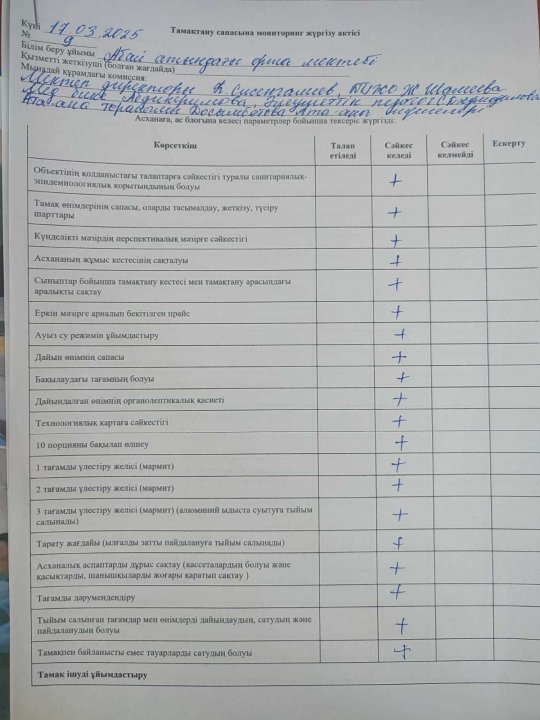 Күні 17.03.2025
Тамақтану сапасына мониторинг жүргізу актісі
№ 9
Білім беру ұйымы Абай атындағы орта мектебі
Қызметті жеткізуші (болған жағдайда)
Мынадай құрамдағы комиссия:
Мектеп директоры К. ТІЖО Ж. Шашева
Мед бике
Ата ана
Асханаға, ас блогына келесі параметрлер бойынша тексеріс жүргізілді:
Көрсеткіш Талап етіледі Сәйкес келеді Сәйкес келмейді Ескерту
Объектінің қолданыстағы талаптарға сәйкестігі туралы санитариялық-
эпидемиологиялық қорытындының болуы +
Тамақ өнімдерінің сапасы, оларды тасымалдау, жеткізу, түсіру
шарттары +
Күнделікті мәзірдің перспективалық мәзірге сәйкестігі +
Асхананың жұмыс кестесінің сақталуы +
Сыныптар бойынша тамақтану кестесі мен тамақтану арасындағы
аралықты сақтау +
Еркін мәзірге арналып бекітілген прайс +
Ауыз су режимін ұйымдастыру +
Дайын өнімнің сапасы +
Бақылаудағы тағамның болуы +
Дайындалған өнімнің органолептикалық қасиеті +
Технологиялық картаға сәйкестігі +
10 порцияны бақылап өлшеу +
1 тағамды үлестіру желісі (мармит) +
2 тағамды үлестіру желісі (мармит) +
3 тағамды үлестіру желісі (мармит) (алюминий ыдыста суытуға тыйым
салынады) +
Тарату жағдайы (ылғалды затты пайдалануға тыйым салынады) +
Асханалық аспаптарды дұрыс сақтау (кассеталардың болуы және
қасықтарды, шанышқыларды жоғары қаратып сақтау ) +
Тағамды дәрумендендіру +
Тыйым салынған тағамдар мен өнімдерді дайындаудың, сатудың және
пайдаланудың болуы +
Тамақпен байланысты емес тауарларды сатудың болуы +
Тамақ ішуді ұйымдастыру